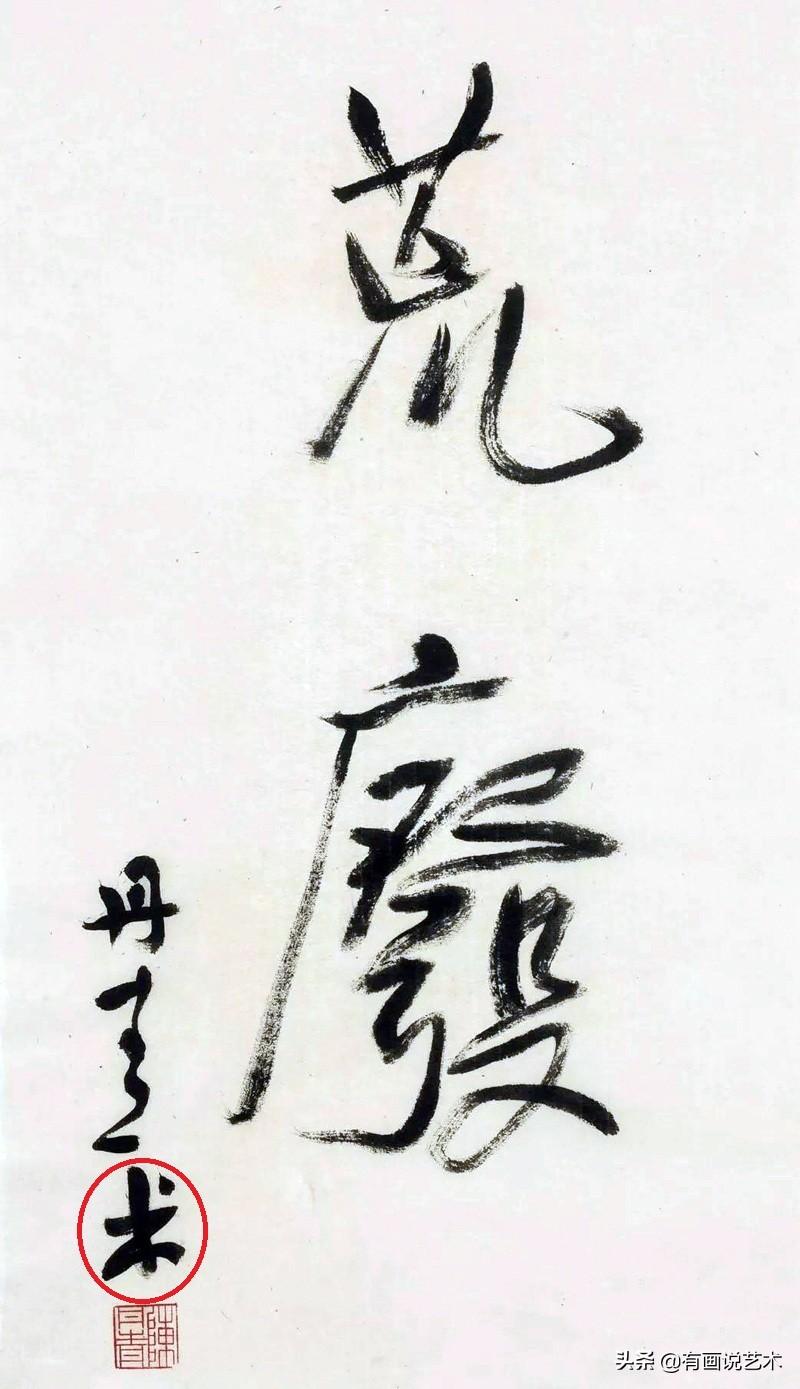 荒廢
丹青术
陳丹青
头条 @有画说艺术